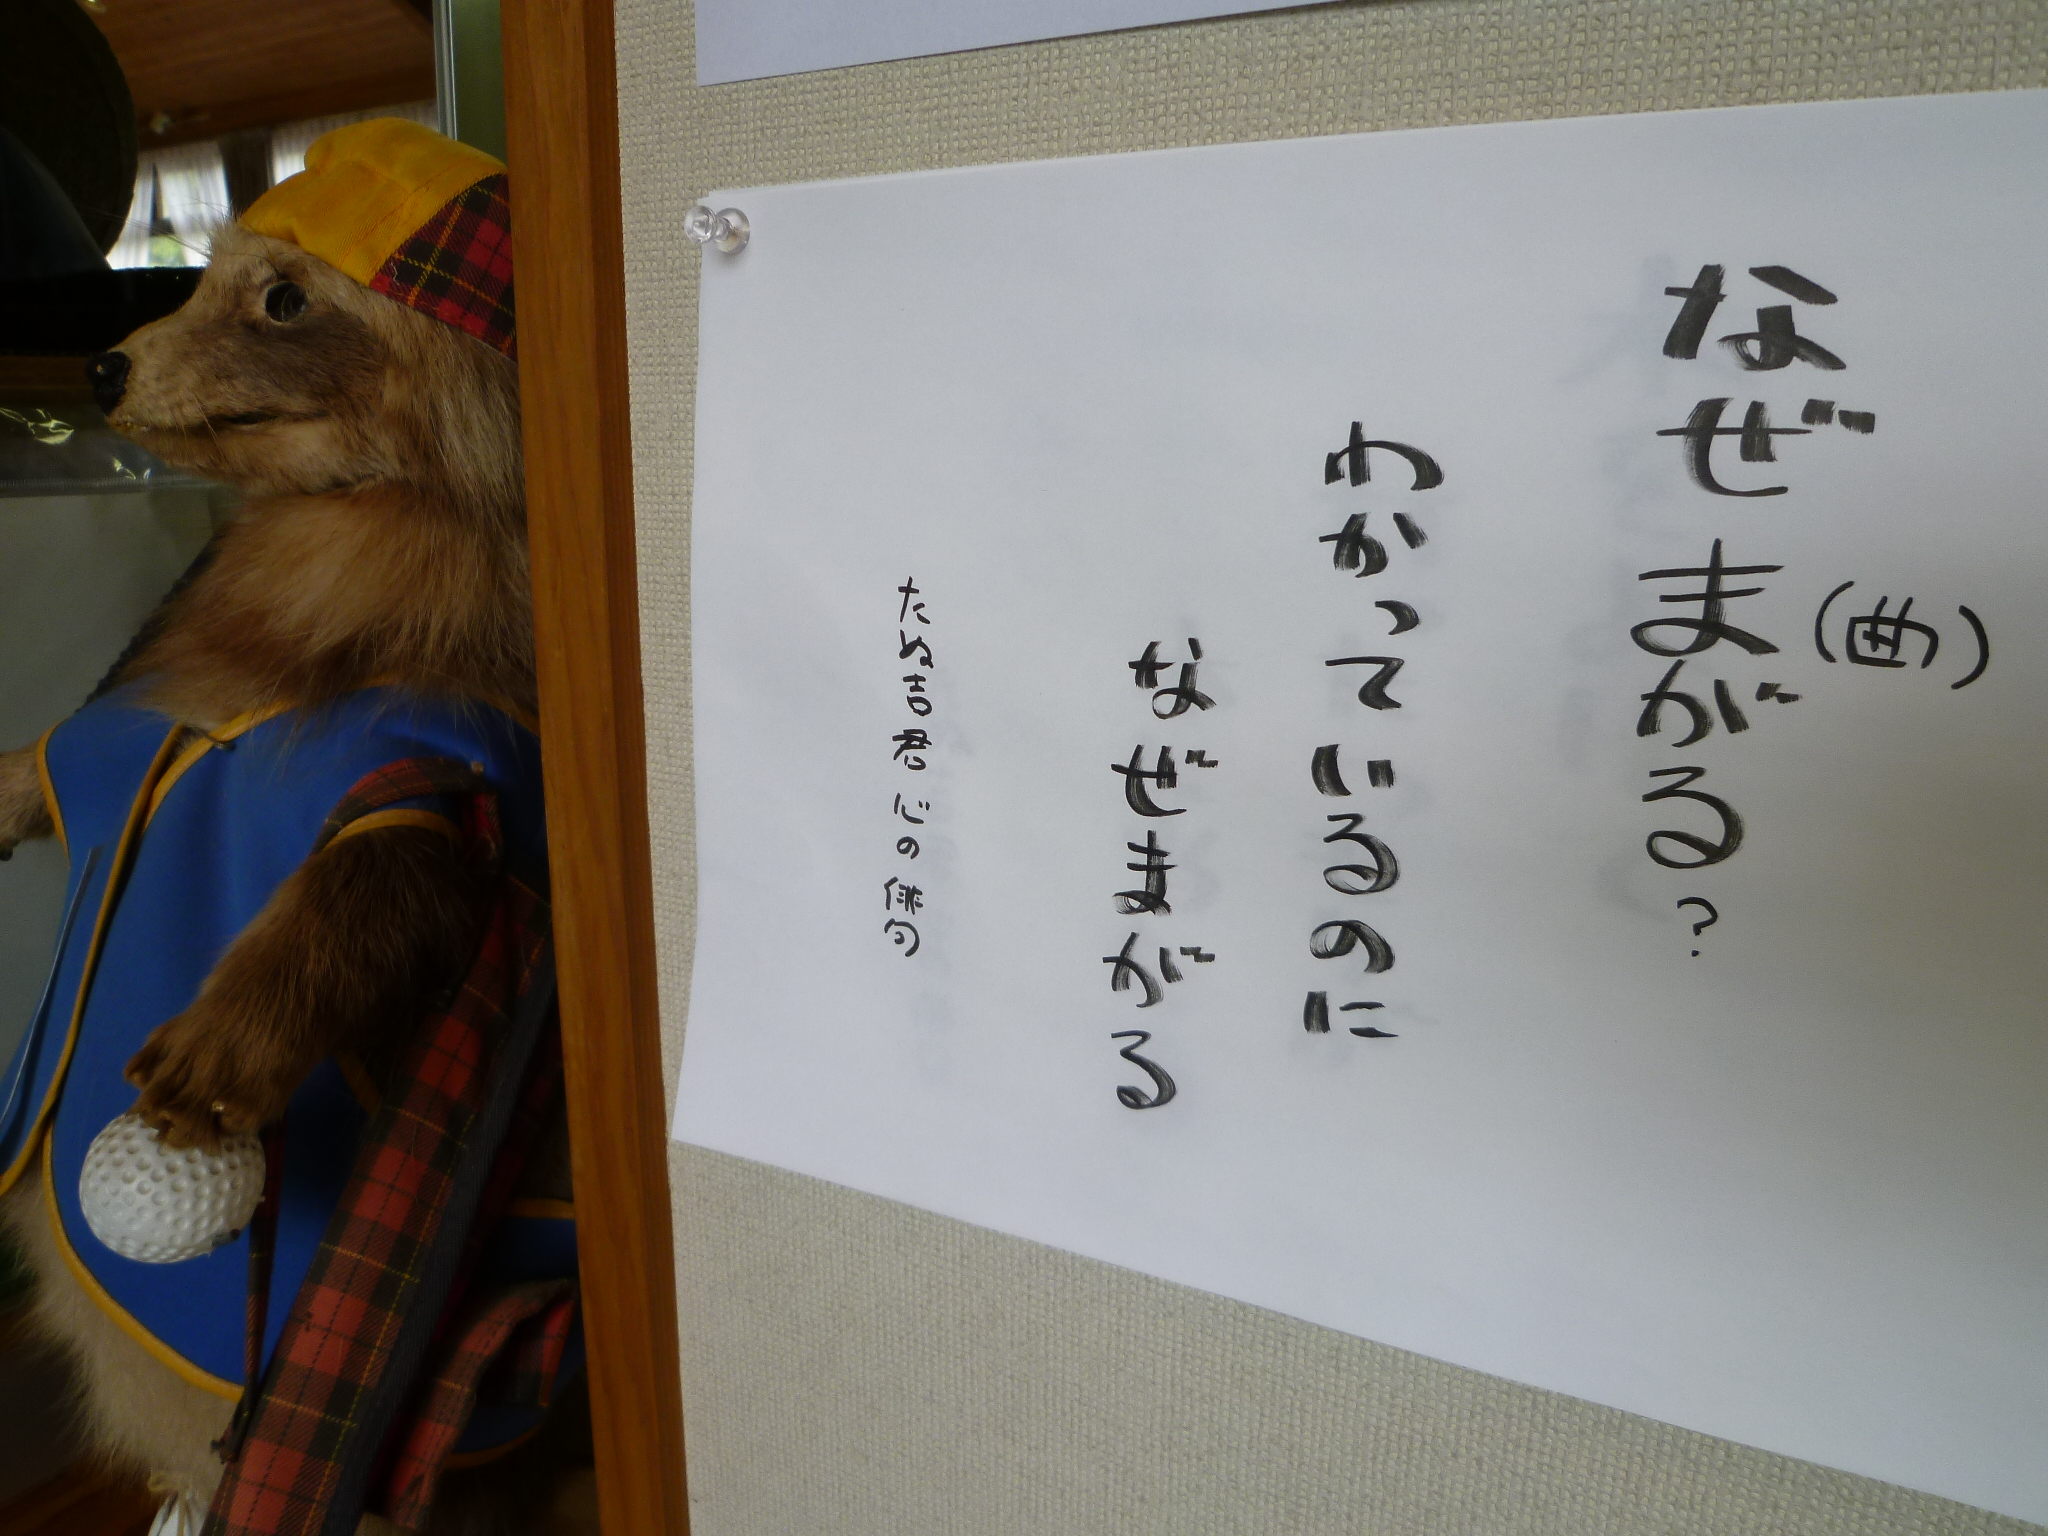 なぜまがる?
(曲)
わかっているのに
なぜまがる
たぬ吉君 心の俳句